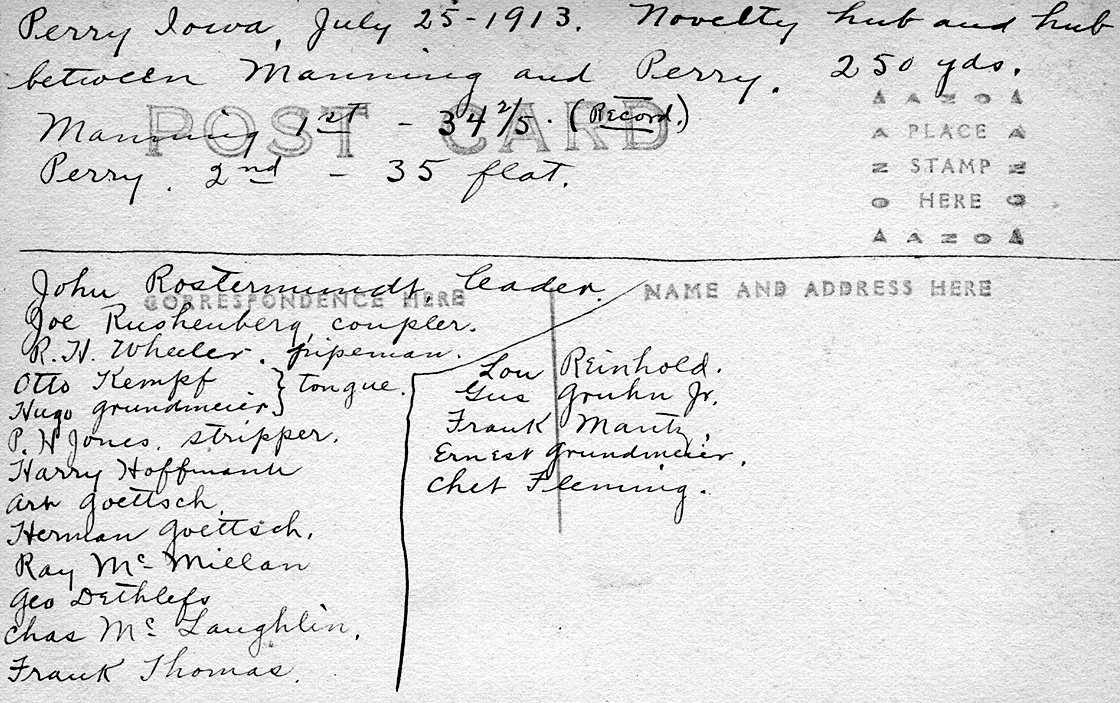 Perry Iowa, July 25-1913. Novelty hub and hub
between Manning and Perry. 250 yds.
POST CARD
Manning 1st - 34 2/5. (Record.)
Perry. 2nd - 35 flat.
AZO
PLACE
STAMP
HERE
AZO
John Rostermundt, leader.
CORRESPONDENCE HERE
NAME AND ADDRESS HERE
Joe Rushenberg, coupler.
R.H. Wheeler. pipeman.
Otto Kempf } tongue.
Hugo Grundmeier
P. H Jones. stripper.
Harry Hoffmann
Art Goettsch.
Herman Goettsch.
Ray Mc Millan
Geo Dethlefs
Chas Mc Laughlin.
Frank Thomas.
Lou Reinhold.
Gus Gruhn Jr.
Frank Mantz.
Ernest Grundmeier.
Chet Fleming.